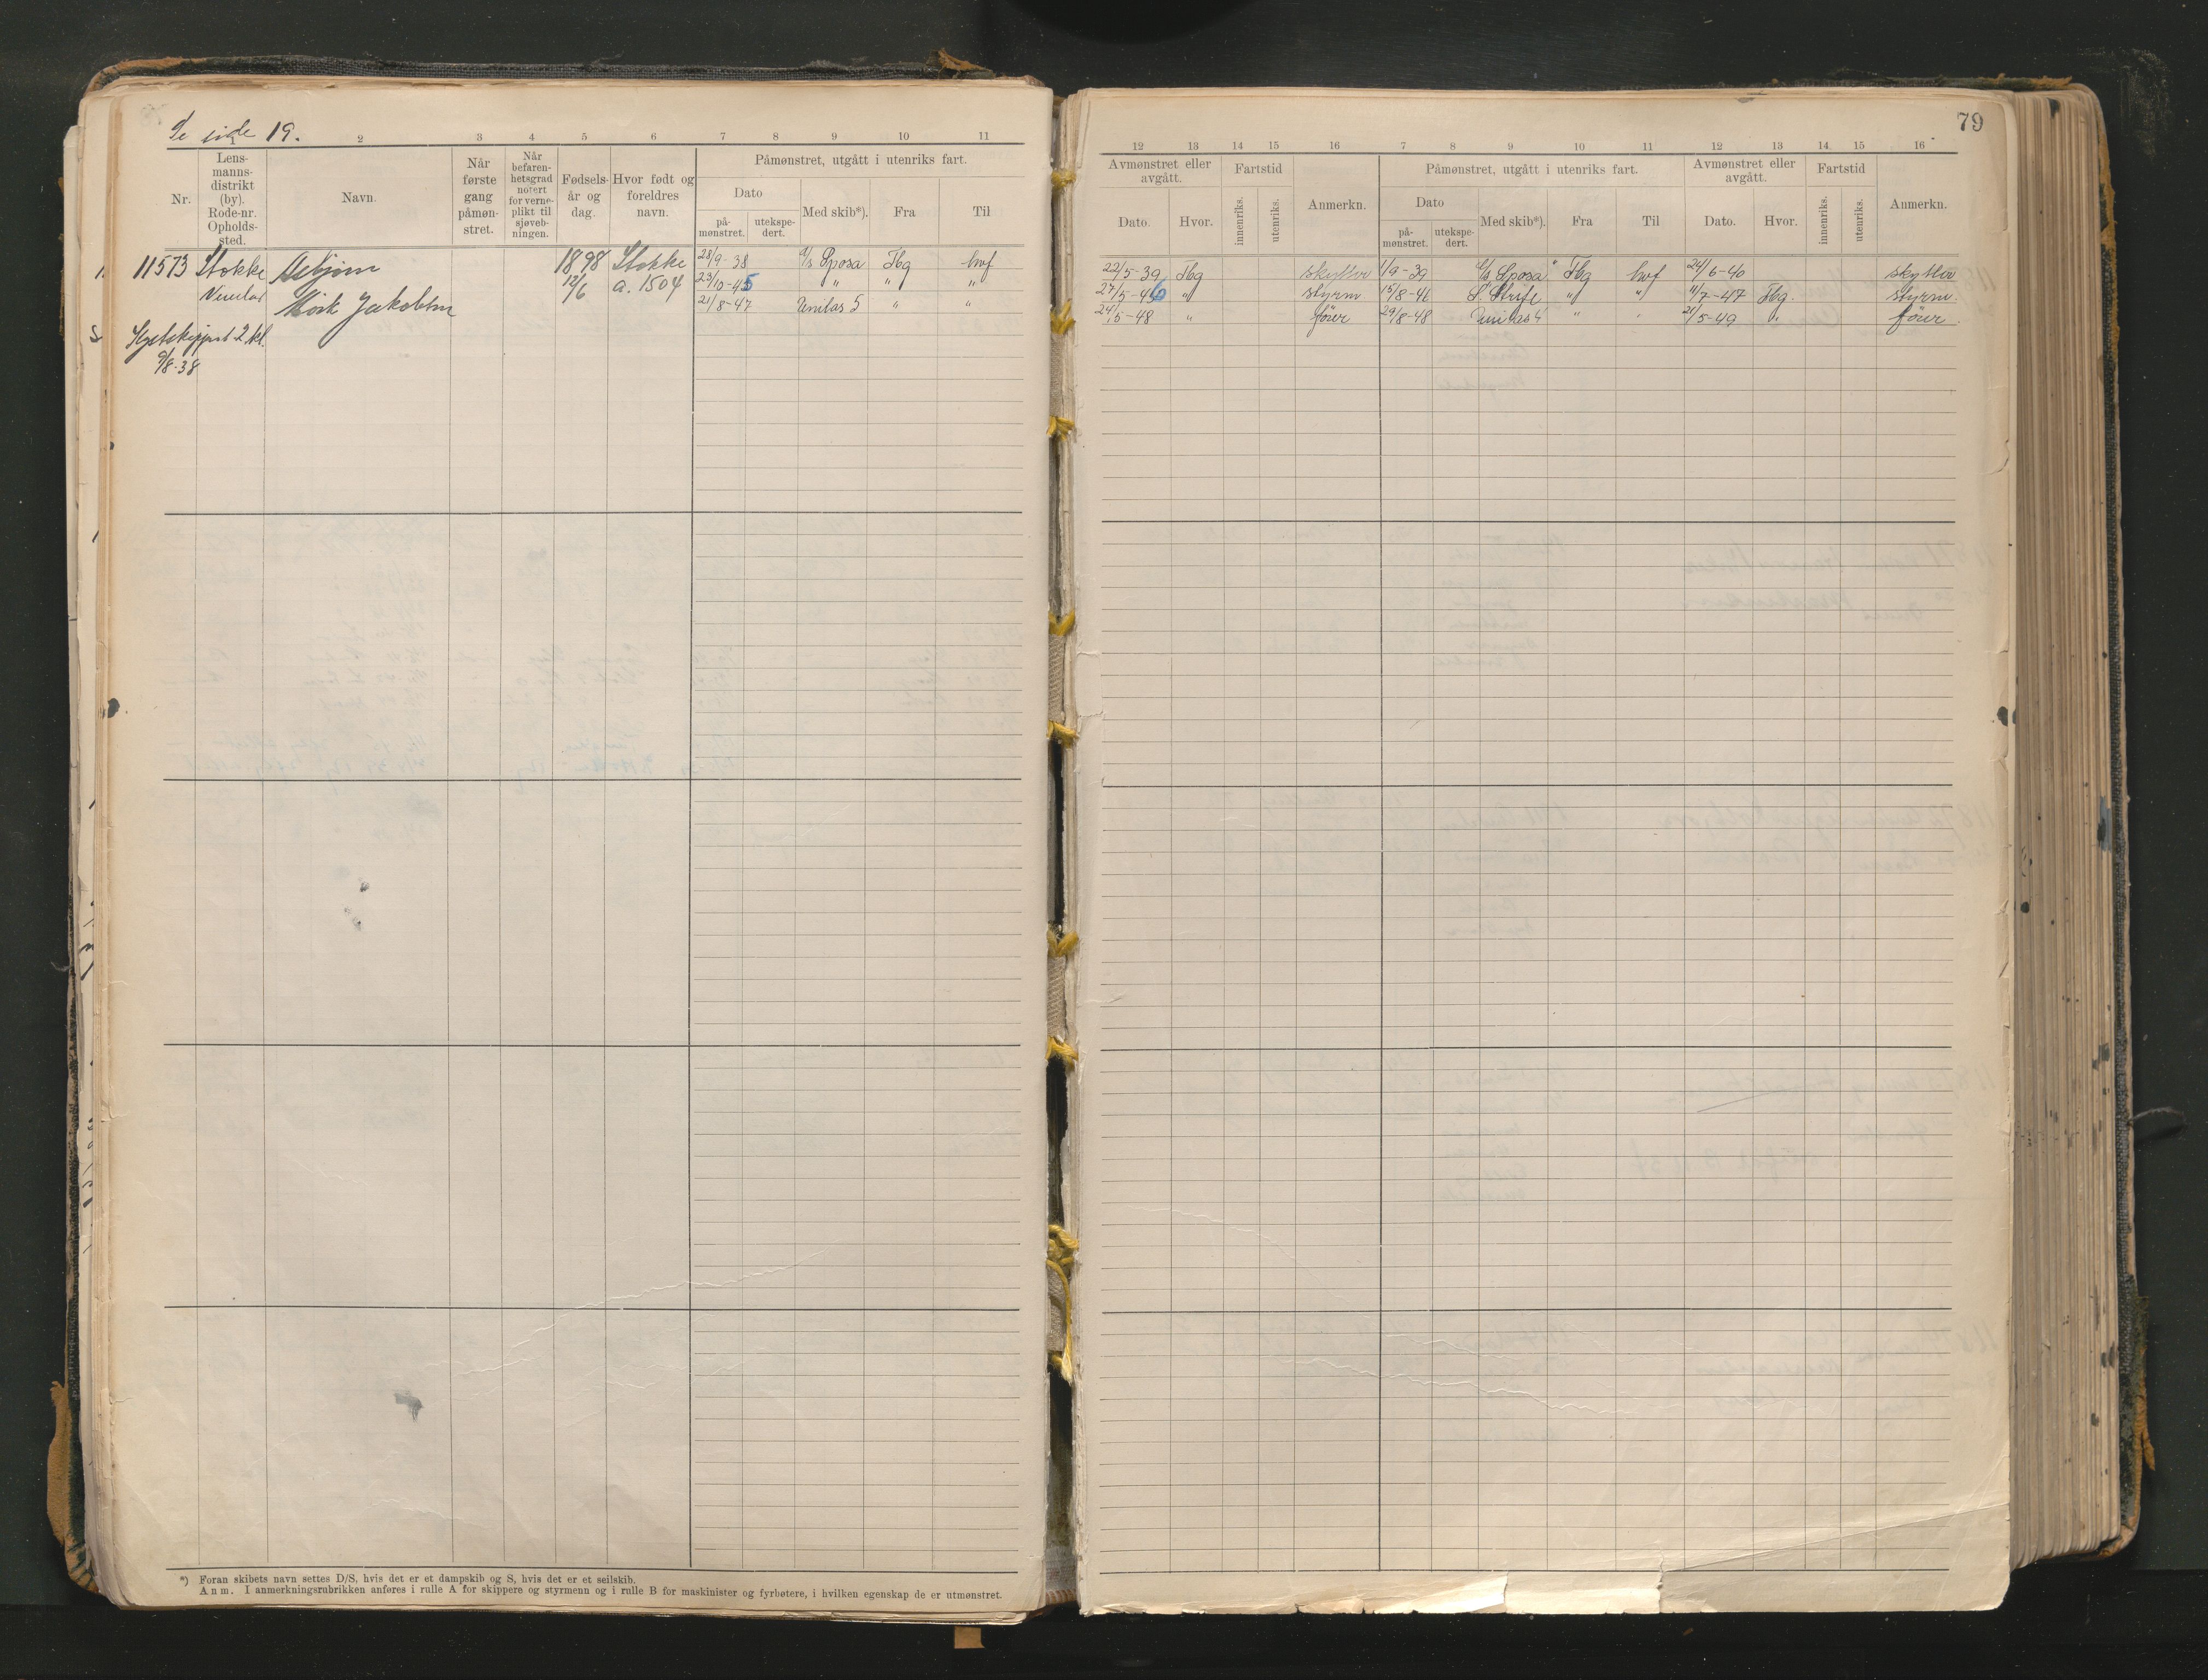 79
Se side 19.
1 2 3 4 5 6 7 8 9 10 11
Nr.
Lens-
manns-
distrikt
(by).
Rode-nr.
Opholds-
sted.
Navn.
Når
første
gang
påmøn-
stret.
Når
befaren-
hetsgrad
notert
for verne-
plikt til
sjøveb-
ningen.
Fødsels-
år og
dag.
Hvor født og
foreldres
navn.
Påmønstret, utgått i utenriks fart.
Dato
på-
mønstret.
utekspe-
dert.
Med skib*).
Fra
Til
11573 Stokke Asbjørn 1898 Stokke 28/9-38 Sposa Tbg hvf
12/6 a. 1504 23/10-45 " " "
Mørk Jakobsen 21/8-47 Unitas 5 " "
Kystskipper 2 kl.
9/8-38
*) Foran skibets navn settes D/S, hvis det er et dampskib og S, hvis det er et seilskib.
Anm. I anmerkningsrubrikken anføres i rulle A for skippere og styrmenn og i rulle B for maskinister og fyrbøtere, i hvilken egenskap de er utmønstret.
12 13 14 15 16 7 8 9 10 11 12 13 14. 15 16
Avmønstret eller
avgått.
Dato.
Hvor.
Fartstid
innenriks.
utenriks.
Anmerkn.
Påmønstret, utgått i utenriks fart.
Dato
på-
mønstret.
utekspe-
dert.
Med skib*).
Fra
Til
Avmønstret eller
avgått.
Dato.
Hvor.
Fartstid
innenriks.
utenriks.
Anmerkn.
22/5-39 Tbg skytter 1/9-39 Sposa Tbg hvf 24/6-40 skytter
27/5-46 " styrm 15/8-46 S. Strife " " 11/7-47 Tbg. styrm.
24/5-48 " fører 29/8-48 Unitas 4 " " 21/5-49 " fører.